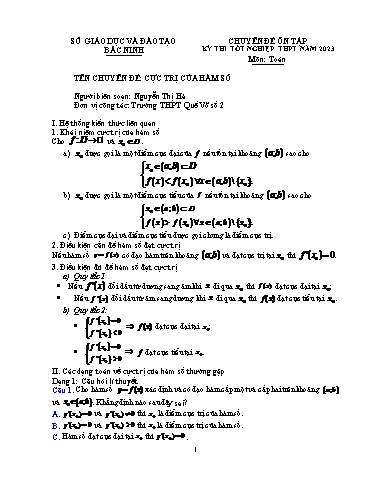 SỞ GIÁO DỤC VÀ ĐÀO TẠO
BẮC NINH
CHUYÊN ĐỀ ÔN TẬP
KỲ THI TỐT NGHIỆP THPT NĂM 2023
Môn: Toán
TÊN CHUYÊN ĐỀ: CỰC TRỊ CỦA HÀM SỐ
Người biên soạn: Nguyễn Thị Hà
Đơn vị công tác: Trường THPT Quế Võ số 2
I. Hệ thống kiến thức liên quan
1. Khái niệm cực trị của hàm số
Cho f: D→□ và x₀∈D.
a) x₀ được gọi là một điểm cực đại của f nếu tồn tại khoảng (a;b) sao cho
{x₀∈(a;b)⊂D
f(x)<f(x₀) ∀x∈(a;b)\{x₀}.
b) x₀ được gọi là một điểm cực tiểu của f nếu tồn tại khoảng (a;b) sao cho
{x₀∈(a;b)⊂D
f(x)>f(x₀) ∀x∈(a;b)\{x₀}.
c) Điểm cực đại và điểm cực tiểu được gọi chung là điểm cực trị.
2. Điều kiện cần để hàm số đạt cực trị
Nếu hàm số y=f(x) có đạo hàm trên khoảng (a;b) và đạt cực trị tại x₀ thì f'(x₀)=0.
3. Điều kiện đủ để hàm số đạt cực trị
a) Quy tắc 1
• Nếu f'(x) đổi dấu từ dương sang âm khi x đi qua x₀ thì f(x) đạt cực đại tại x₀;
• Nếu f'(x) đổi dấu từ âm sang dương khi x đi qua x₀ thì f(x) đạt cực tiểu tại x₀.
b) Quy tắc 2:
• {f'(x₀)=0
f''(x₀)<0 ⇒ f(x) đạt cực đại tại x₀;
• {f'(x₀)=0
f''(x₀)>0 ⇒ f đạt cực tiểu tại x₀.
II. Các dạng toán về cực trị của hàm số thường gặp
Dạng 1: Câu hỏi lí thuyết
Câu 1. Cho hàm số y=f(x) xác định và có đạo hàm cấp một và cấp hai trên khoảng (a;b)
và x₀∈(a;b). Khẳng định nào sau đây sai?
A. y'(x₀)=0 và y''(x₀)≠0 thì x₀ là điểm cực trị của hàm số.
B. y'(x₀)=0 và y''(x₀)>0 thì x₀ là điểm cực trị của hàm số.
C. Hàm số đạt cực đại tại x₀ thì y'(x₀)=0.
1